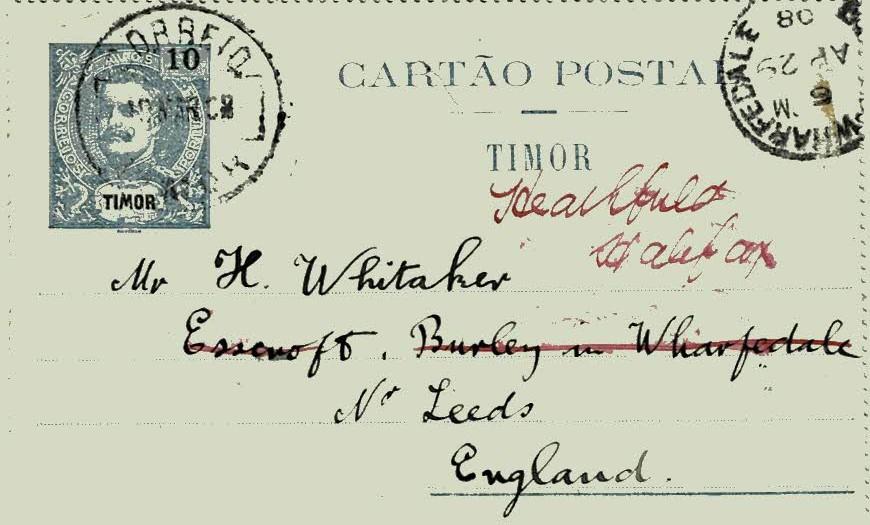 CORREIO
10
CORREIOS
TIMOR
CARTÃO POSTAL
TIMOR
WHARFEDALE
AP 29
08
Heathfield
Halifax
Mr H. Whitaker
Esscroft, Burley in Wharfedale
Nr Leeds
England.